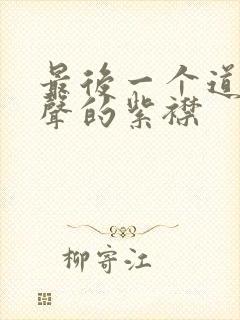 最後一个道
聲的紫襟
柳寄江